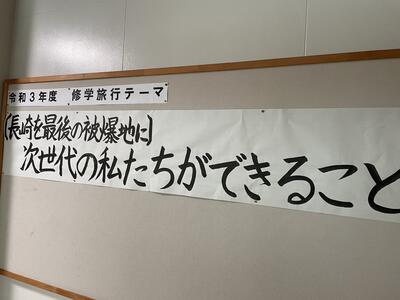 令和３年度　修学旅行テーマ
〔長崎を最後の被爆地に〕
次世代の私たちができること